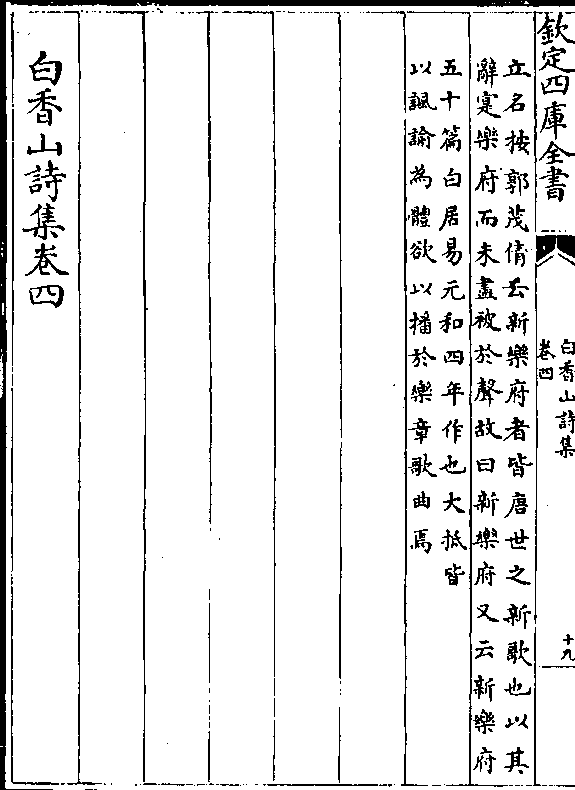 欽定四庫全書
白香山詩集
卷四
十九
立名按郭茂倩云新樂府者皆唐世之新歌也以其
辭寔樂府而未盡被於聲故曰新樂府又云新樂府
五十篇白居易元和四年作也大抵皆
以諷諭為體欲以播於樂章歌曲焉
白香山詩集卷四